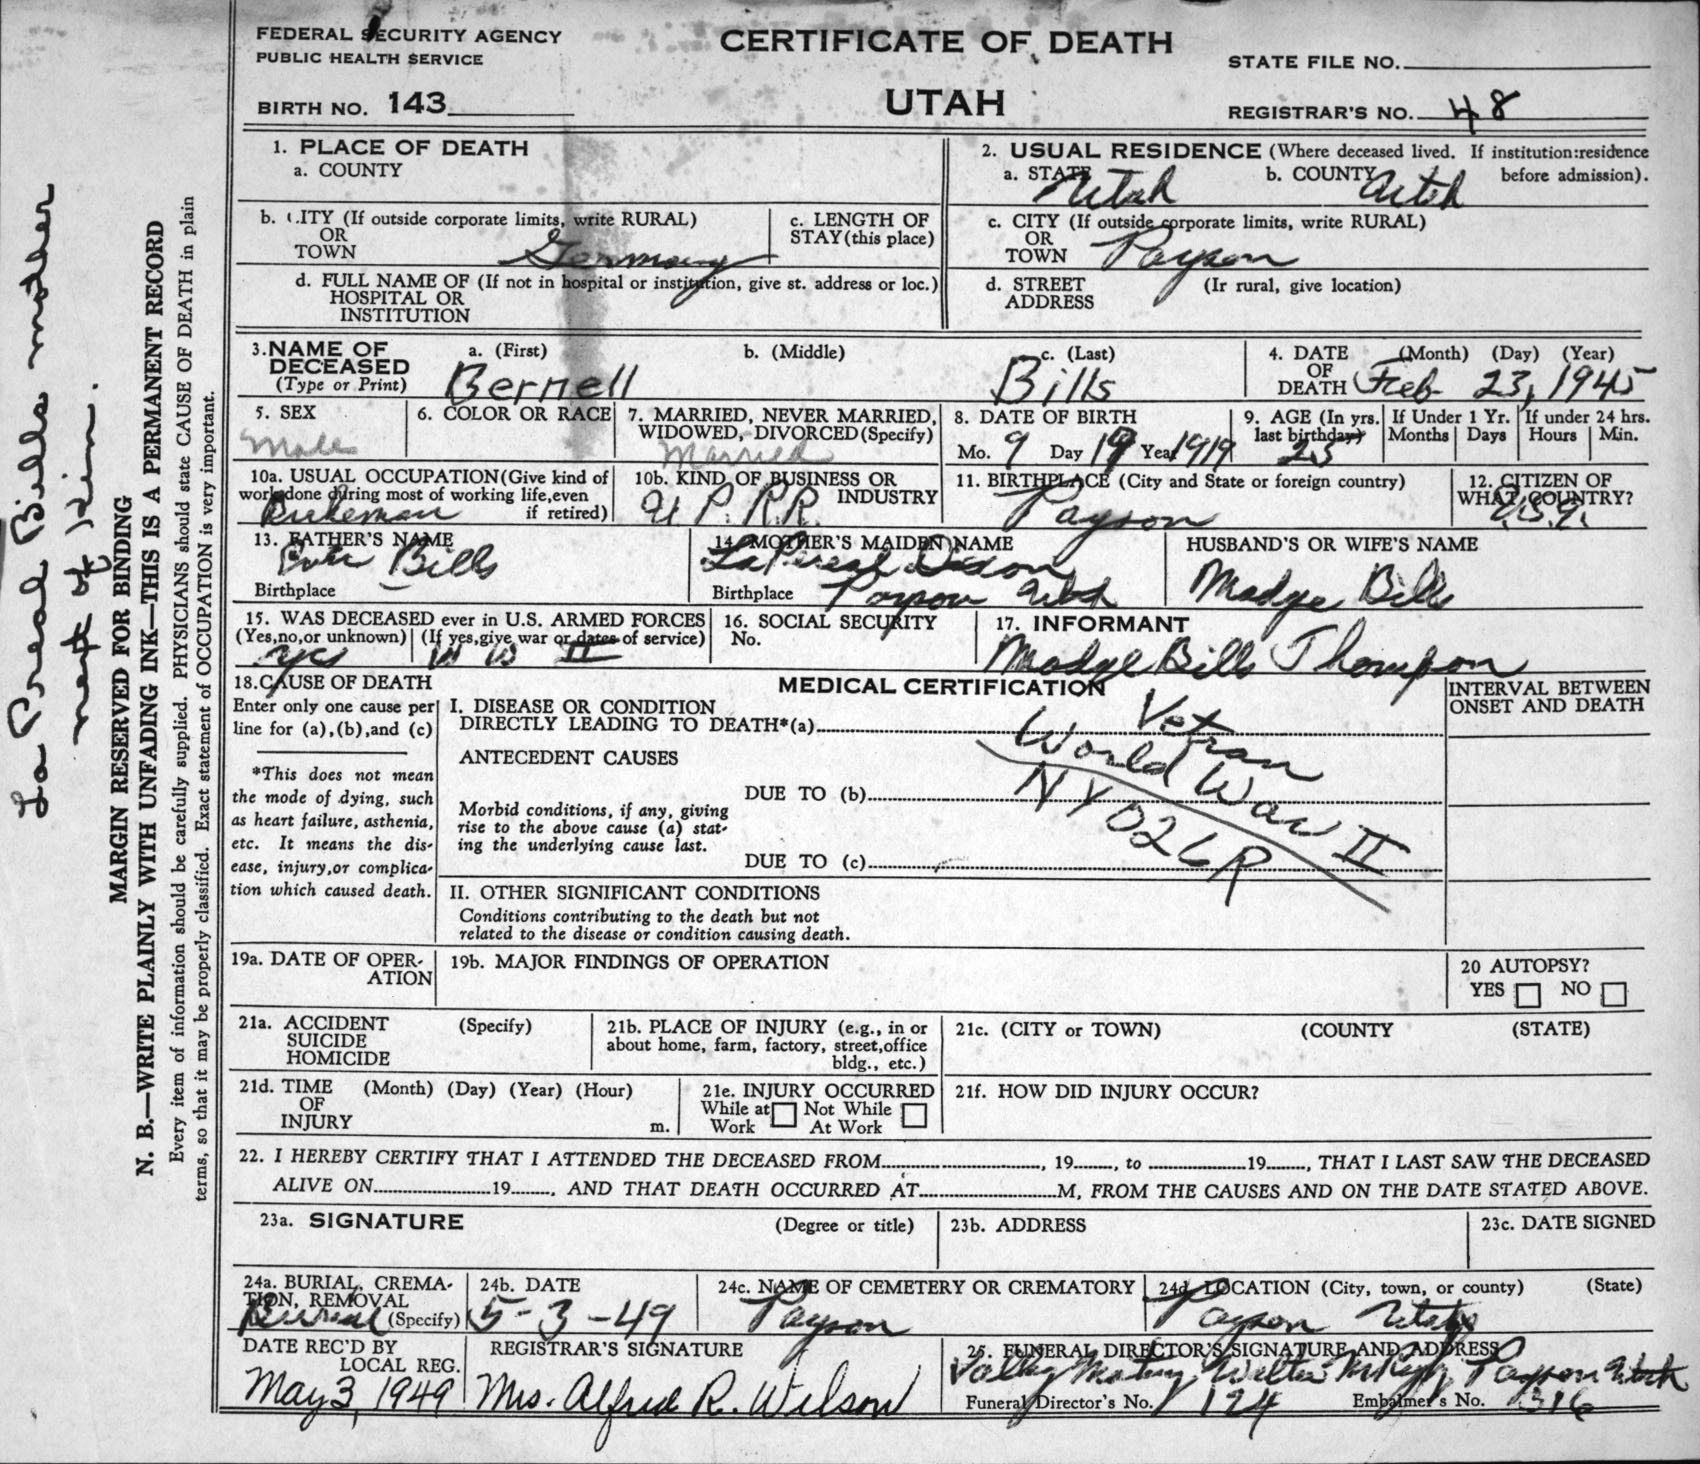 FEDERAL SECURITY AGENCY
PUBLIC HEALTH SERVICE
BIRTH NO. 143
CERTIFICATE OF DEATH
UTAH
STATE FILE NO.
REGISTRAR'S NO. 48
1. PLACE OF DEATH
a. COUNTY
b. CITY (If outside corporate limits, write RURAL)
OR
TOWN Germany
c. LENGTH OF
STAY (this place)
d. FULL NAME OF (If not in hospital or institution, give st. address or loc.)
HOSPITAL OR
INSTITUTION
2. USUAL RESIDENCE (Where deceased lived. If institution:residence
a. STATE Utah b. COUNTY Utah before admission).
c. CITY (If outside corporate limits, write RURAL)
OR
TOWN Payson
d. STREET (Ir rural, give location)
ADDRESS
3. NAME OF DECEASED
(Type or Print)
a. (First) Bernell
b. (Middle)
c. (Last) Bills
4. DATE OF DEATH (Month) (Day) (Year)
Feb 23, 1945
5. SEX
Male
6. COLOR OR RACE
7. MARRIED, NEVER MARRIED,
WIDOWED, DIVORCED (Specify)
Married
8. DATE OF BIRTH
Mo. 9 Day 19 Year 1919
9. AGE (In yrs.
last birthday)
25
If Under 1 Yr.
Months Days
If under 24 hrs.
Hours Min.
10a. USUAL OCCUPATION (Give kind of
work done during most of working life, even
if retired)
Brakeman
10b. KIND OF BUSINESS OR
INDUSTRY
U.P.R.R.
11. BIRTHPLACE (City and State or foreign country)
Payson
12. CITIZEN OF
WHAT COUNTRY?
U.S.A.
13. FATHER'S NAME
Bills
Birthplace
14. MOTHER'S MAIDEN NAME
LaPreal Dixon
Birthplace Payson Utah
HUSBAND'S OR WIFE'S NAME
Madge Bills
15. WAS DECEASED ever in U.S. ARMED FORCES
(Yes,no,or unknown) (If yes,give war or dates of service)
yes W W II
16. SOCIAL SECURITY
No.
17. INFORMANT
Madge Bills Thompson
18. CAUSE OF DEATH
Enter only one cause per
line for (a),(b),and (c)
*This does not mean
the mode of dying, such
as heart failure, asthenia,
etc. It means the dis-
ease, injury,or complica-
tion which caused death.
MEDICAL CERTIFICATION
I. DISEASE OR CONDITION
DIRECTLY LEADING TO DEATH*(a)
ANTECEDENT CAUSES
Morbid conditions, if any, giving
rise to the above cause (a) stat-
ing the underlying cause last.
DUE TO (b)
DUE TO (c)
Vetran
World War II
NYO26R
INTERVAL BETWEEN
ONSET AND DEATH
II. OTHER SIGNIFICANT CONDITIONS
Conditions contributing to the death but not
related to the disease or condition causing death.
19a. DATE OF OPER-
ATION
19b. MAJOR FINDINGS OF OPERATION
20 AUTOPSY?
YES NO
21a. ACCIDENT (Specify)
SUICIDE
HOMICIDE
21b. PLACE OF INJURY (e.g., in or
about home, farm, factory, street,office
bldg., etc.)
21c. (CITY or TOWN) (COUNTY (STATE)
21d. TIME (Month) (Day) (Year) (Hour)
OF
INJURY m.
21e. INJURY OCCURRED
While at Work Not While At Work
21f. HOW DID INJURY OCCUR?
22. I HEREBY CERTIFY THAT I ATTENDED THE DECEASED FROM, 19, to 19, THAT I LAST SAW THE DECEASED
ALIVE ON 19, AND THAT DEATH OCCURRED AT M, FROM THE CAUSES AND ON THE DATE STATED ABOVE.
23a. SIGNATURE (Degree or title)
23b. ADDRESS
23c. DATE SIGNED
24a. BURIAL, CREMA-
TION, REMOVAL
(Specify)
Burial
24b. DATE
5-3-49
24c. NAME OF CEMETERY OR CREMATORY
Payson
24d. LOCATION (City, town, or county) (State)
Payson Utah
DATE REC'D BY
LOCAL REG.
May 3, 1949
REGISTRAR'S SIGNATURE
Mrs. Alfred R. Wilson
25. FUNERAL DIRECTOR'S SIGNATURE AND ADDRESS
Valley Mortuary Walter Payson Utah
Funeral Director's No. 124 Embalmer's No. 316
La Preal Bills mother
next of Kin.
MARGIN RESERVED FOR BINDING
N. B.—WRITE PLAINLY WITH UNFADING INK—THIS IS A PERMANENT RECORD
Every item of information should be carefully supplied. PHYSICIANS should state CAUSE OF DEATH in plain
terms, so that it may be properly classified. Exact statement of OCCUPATION is very important.